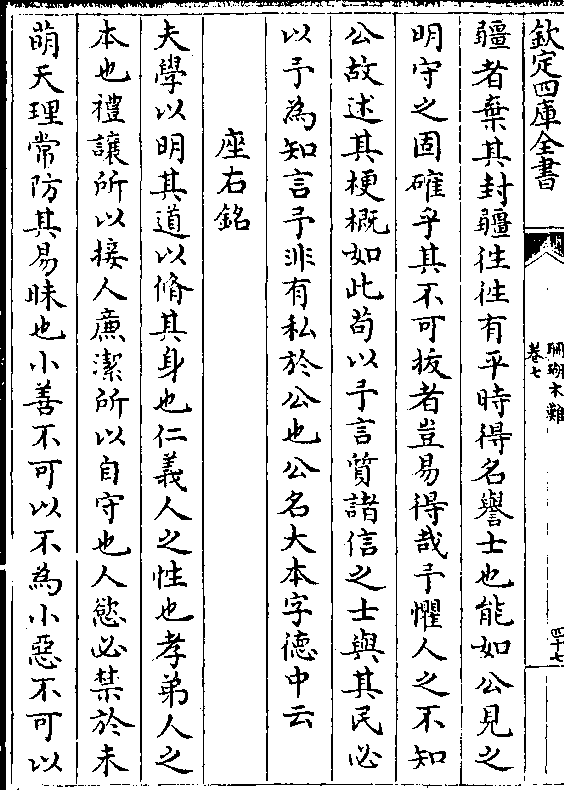 欽定四庫全書
珊瑚木難
卷七
四十七
疆者棄其封疆徃徃有平時得名譽士也能如公見之
明守之固確乎其不可拔者豈易得哉予懼人之不知
公故述其梗概如此茍以予言質諸信之士與其民必
以予為知言予非有私於公也公名大本字德中云
座右銘
夫學以明其道以脩其身也仁義人之性也孝弟人之
本也禮讓所以接人廉潔所以自守也人慾必禁於未
萌天理常防其易昧也小善不可以不為小惡不可以